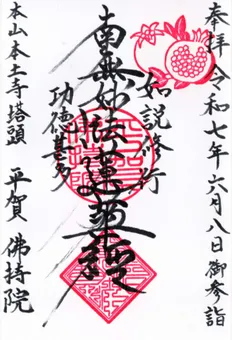 奉拝 令和七年六月八日 御参詣
如説修行
南無妙法蓮華経
功徳甚多
本山本土寺塔頭 平賀 佛持院